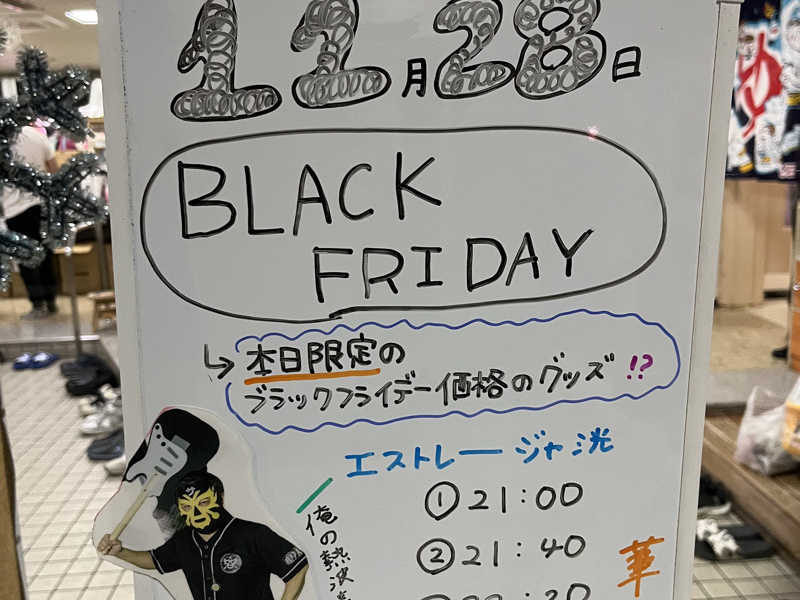 11月28日
BLACK
FRIDAY
↳本日限定の
ブラックフライデー価格のグッズ!?
エストレージャ洸
①21:00
②21:40
俺の熱波
華